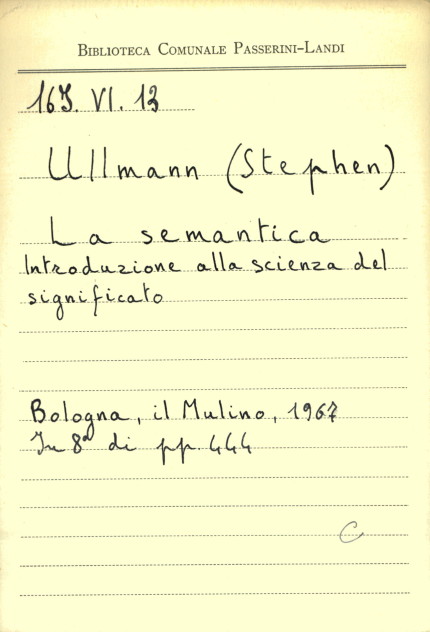 BIBLIOTECA COMUNALE PASSERINI-LANDI
165. VI. 13
Ullmann (Stephen)
La semantica
Introduzione alla scienza del
significato
Bologna, il Mulino, 1967
In 8° di pp. 444
C